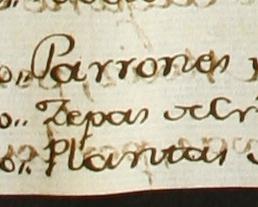 o,, Parrones y
o,, Zepas de
o,, Plantas